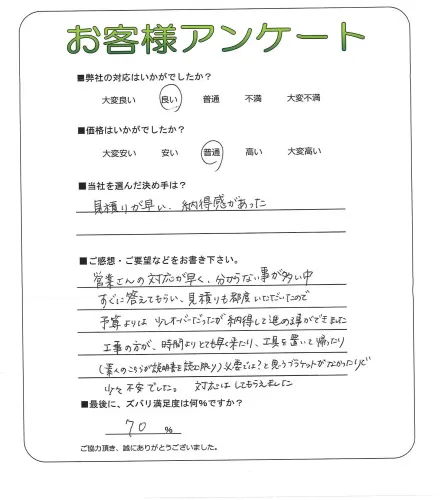 お客様アンケート
■弊社の対応はいかがでしたか？
大変良い 良い 普通 不満 大変不満
■価格はいかがでしたか？
大変安い 安い 普通 高い 大変高い
■当社を選んだ決め手は？
見積りが早い、納得感があった
■ご感想・ご要望などをお書き下さい。
営業さんの対応が早く、分からない事が多い中
すぐに答えてもらい、見積りも都度いただいたので
予算よりは少しオーバーだったが納得して進める事ができました
工事の方が、時間よりとても早く来たり、工具を置いて帰ったり
(素人のこちらが説明書を読む限り)必要では？と思うブラケットがなかったりと
少々不安でした。 対応はしてもらえました
■最後に、ズバリ満足度は何%ですか？
70 %
ご協力頂き、誠にありがとうございました。